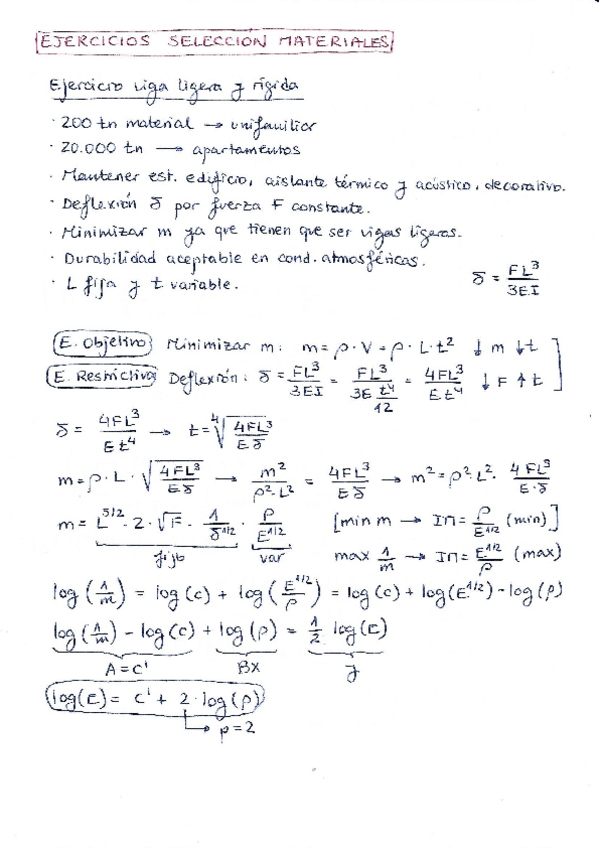 EJERCICIOS SELECCION MATERIALES
Ejercicio viga ligera y rígida
· 200 tn material → unifamiliar
· 20.000 tn → apartamentos
· Mantener est. edificio, aislante térmico y acústico, decorativo.
· Deflexión δ por fuerza F constante.
· Minimizar m ya que tienen que ser vigas ligeras.
· Durabilidad aceptable en cond. atmosféricas.
· L fija y t variable.
δ = FL³/3EI
E. Objetivo Minimizar m: m = ρ·V = ρ·L·t² ↓m ↓t
E. Restrictiva Deflexión: δ = FL³/3EI = FL³/(3E t⁴/12) = 4FL³/Et⁴ ↓F ↑t
δ = 4FL³/Et⁴ → t = ⁴√(4FL³/Eδ)
m = ρ·L·√(4FL³/Eδ) → m²/ρ²·L² = 4FL³/Eδ → m² = ρ²·L²· 4FL³/E·δ
m = L^5/2·2·√F· 1/δ^1/2 · ρ/E^1/2 [min m → IM = ρ/E^1/2 (min)]
fijo var max 1/m → IM = E^1/2/ρ (max)
log(1/m) = log(c) + log(E^1/2/ρ) = log(c) + log(E^1/2) - log(ρ)
log(1/m) - log(c) + log(ρ) = 1/2 log(E)
A=C' BX y
log(E) = C' + 2·log(ρ)
→ p=2